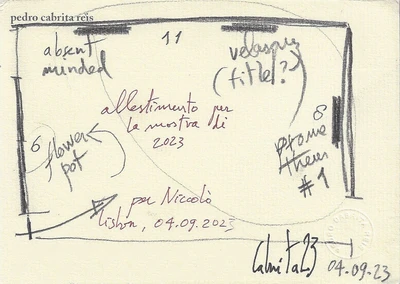 pedro cabrita reis
absent
minded
11
velasquez
(title?)
allestimento per
la mostra di
2023
8
6
flower
pot
prome
theus
#1
per Niccolò
Lisbon, 04.09.2023
Cabrita 23
04-09-23